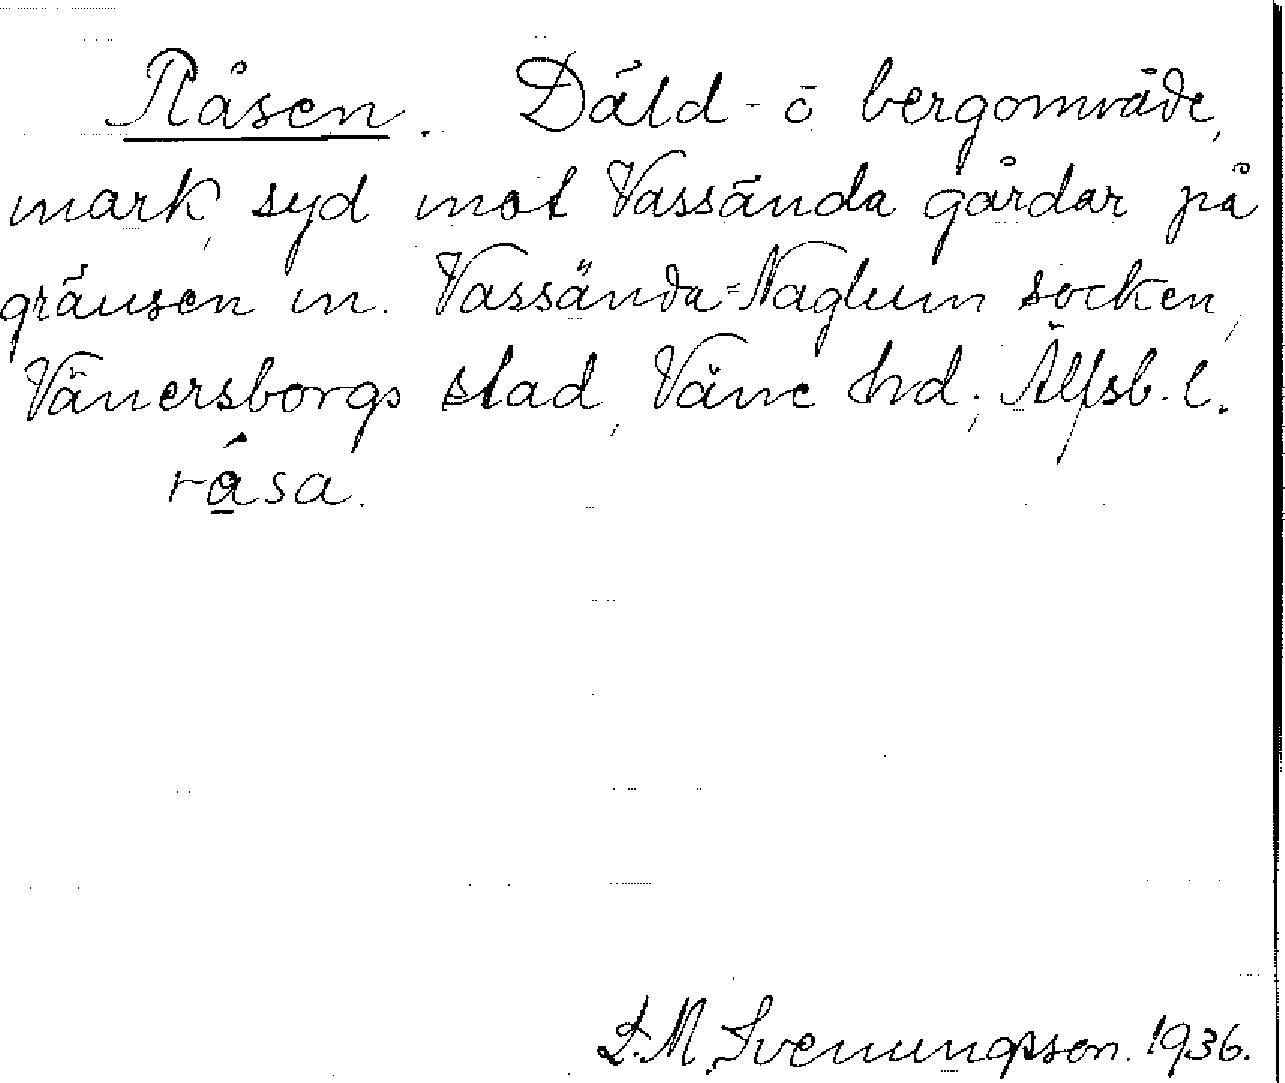 Råsen. Däld- o bergområde,
mark, syd mot Vassända gårdar på
gränsen m. Vassända-Naglum socken,
Vänersborgs stad, Väne hd; Älfsb. l.
råsa.
S.M. Svenungsson. 1936.